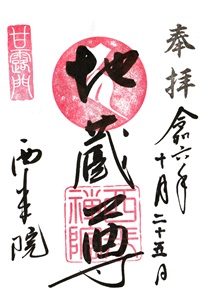 奉拝
令和六年
十月二十五日
地蔵尊
甘露門
西来院
西来禅院